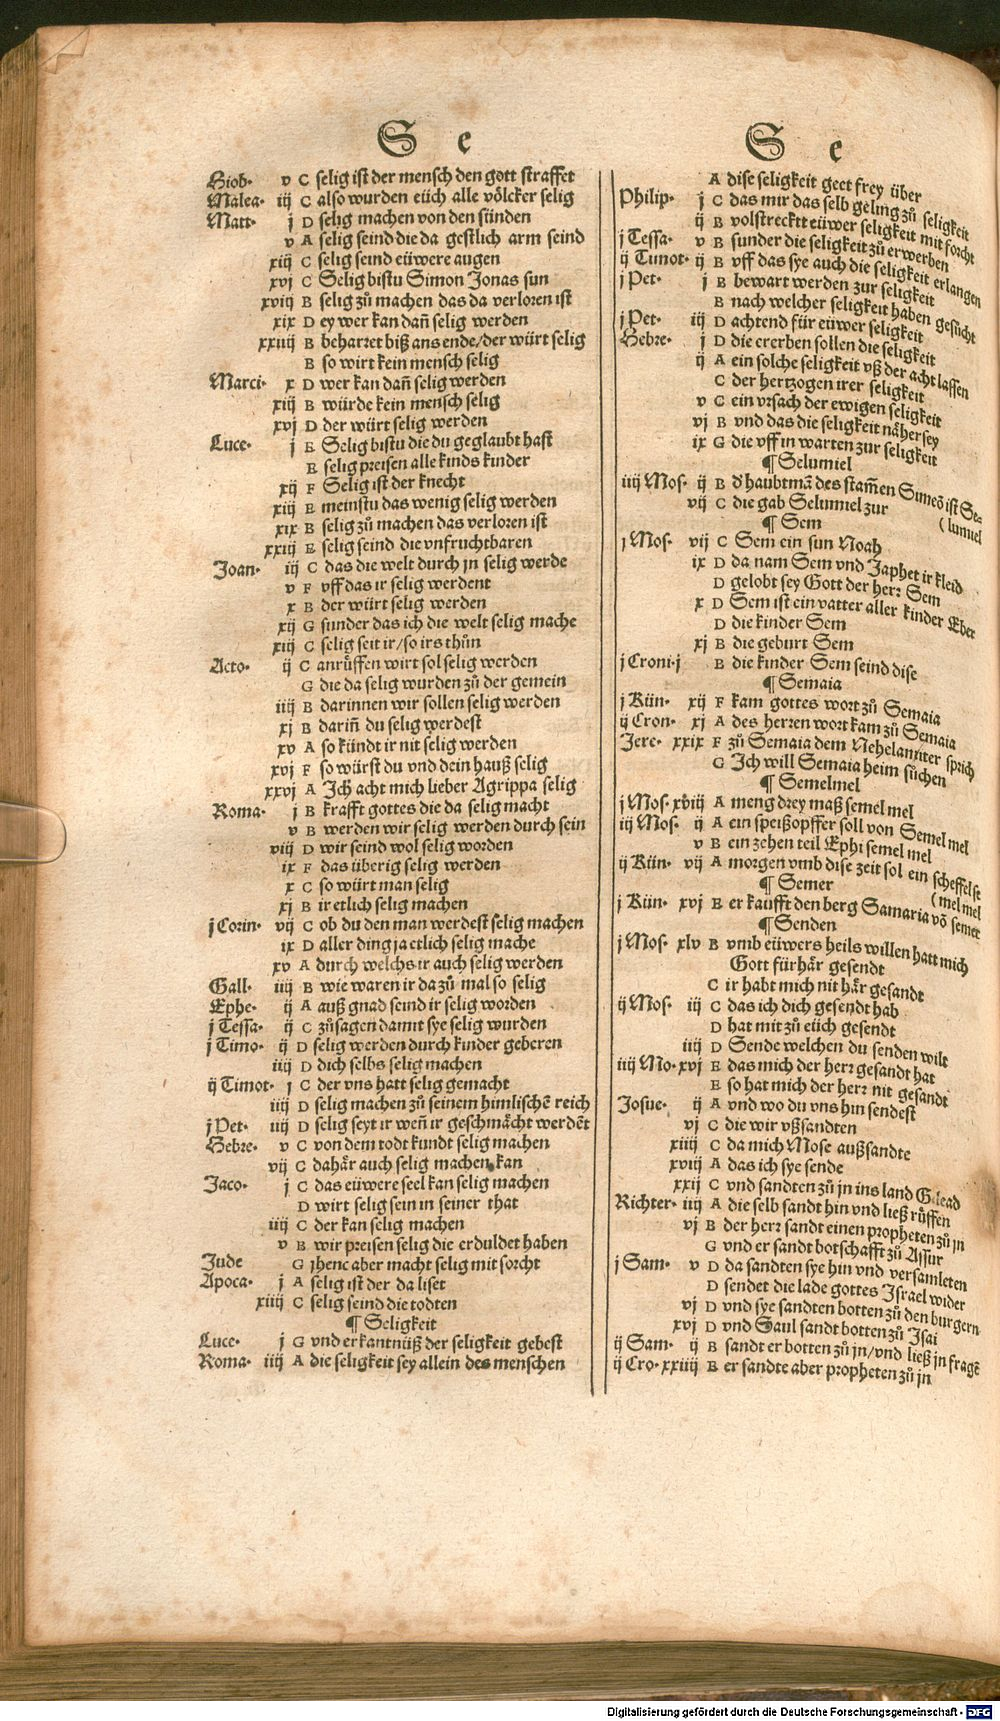 S e
Hiob· v C selig ist der mensch den gott straffet
Malea· iij C also wurden eüch alle völcker selig
Matt· j D selig machen von den sünden
v A selig seind die da gestlich arm seind
xiij C selig seind eüwere augen
xvj C Selig bistu Simon Jonas sun
xviij B selig zů machen das da verloren ist
xix D ey wer kan dañ selig werden
xxiiij B beharret biß ans ende/der würt selig
B so wirt kein mensch selig
Marci· x D wer kan dañ selig werden
xiij B würde kein mensch selig
xvj D der würt selig werden
Luce· j E Selig bistu die du geglaubt hast
E selig preisen alle kinds kinder
xij F Selig ist der knecht
xiij E meinstu das wenig selig werden
xix B selig zů machen das verloren ist
xxiij E selig seind die vnfruchtbaren
Joan· iij C das die welt durch jn selig werde
v F vff das ir selig werdent
x B der würt selig werden
xij G sunder das ich die welt selig mache
xiij C selig seit ir/so irs thůn
Acto· ij C anrůffen wirt sol selig werden
G die da selig wurden zů der gemein
iiij B darinnen wir sollen selig werden
xj B dariñ du selig werdest
xv A so kündt ir nit selig werden
xvj F so würst du vnd dein hauß selig
xxvj A Ich acht mich lieber Agrippa selig
Roma· j B krafft gottes die da selig macht
v B werden wir selig werden durch sein
viij D wir seind wol selig worden
ix F das überig selig werden
x C so würt man selig
xj B ir etlich selig machen
j Corin· vij C ob du den man werdest selig machen
ix D aller ding ja etlich selig mache
xv A durch welchs ir auch selig werden
Gall· iiij B wie waren ir da zů mal so selig
Ephe· ij A auß gnad seind ir selig worden
j Tessa· ij C zůsagen damit sye selig wurden
j Timo· ij D selig werden durch kinder geberen
iiij D dich selbs selig machen
ij Timot· j C der vns hatt selig gemacht
iiij D selig machen zů seinem himlischē reich
j Pet· iiij D selig seyt ir weñ ir geschmächt werdēt
Hebre· v C von dem todt kundt selig machen
vij C dahär auch selig machen kan
Jaco· j C das eüwere seel kan selig machen
D wirt selig sein in seiner that
iiij C der kan selig machen
v B wir preisen selig die erduldet haben
Jude G jhene aber macht selig mit forcht
Apoca· j A selig ist der da liset
xiiij C selig seind die todten
¶ Seligkeit
Luce· j G vnd erkantnüß der seligkeit gebest
Roma· iiij A die seligkeit sey allein des menschen
S e
A dise seligkeit geet frey über
Philip· j C das mir das selb geling zů seligkeit
ij B volstrecktt eüwer seligkeit mit forcht
j Tessa· v B sunder die seligkeit zů erwerben
ij Timot· ij B vff das sye auch die seligkeit erlangen
j Pet· j B bewart werden zur seligkeit
B nach welcher seligkeit haben gesücht
j Pet· iij D achtend für eüwer seligkeit
Hebre· j D die ererben sollen die seligkeit
ij A ein solche seligkeit vß der acht lassen
C der hertzogen irer seligkeit
v C ein vrsach der ewigen seligkeit
vj B vnd das die seligkeit näher sey
ix G die vff in warten zur seligkeit
¶ Selumiel
iiij Mos· ij B d'haubtmā des stam̃en Simeō ist Se-
(lumiel
vij C die gab Selumiel zur
¶ Sem
j Mos· vij C Sem ein sun Noah
ix D da nam Sem vnd Japhet ir kleid
D gelobt sey Gott der herr Sem
x D Sem ist ein vatter aller kinder Eber
D die kinder Sem
xj B die geburt Sem
j Croni· j B die kinder Sem seind dise
¶ Semaia
j Kün· xij F kam gottes wort zů Semaia
ij Cron· xj A des herren wort kam zů Semaia
Jere· xxix F zů Semaia dem Nehelamiter sprich
G Ich will Semaia heim sůchen
¶ Semelmel
j Mos· xviij A meng drey maß semel mel
iij Mos· ij A ein speißopffer soll von Semel mel
v B ein zehen teil Ephi semel mel
ij Kün· vij A morgen vmb dise zeit sol ein scheffel se
(mel mel
¶ Semer
j Kün· xvj B er kaufft den berg Samaria vō semer
¶ Senden
j Mos· xlv B vmb eüwers heils willen hatt mich
Gott fürhär gesendt
C ir habt mich nit här gesandt
ij Mos· iij C das ich dich gesendt hab
D hat mit zů eüch gesendt
iiij D Sende welchen du senden wilt
iiij Mo· xvj E das mich der herr gesandt hat
E so hat mich der herr nit gesandt
Josue· ij A vnd wo du vns hin sendest
vj C die wir vßsandten
xiiij C da mich Mose außsandte
xviij A das ich sye sende
xxij C vnd sandten zů jn ins land Gilead
Richter· iiij A die selb sandt hin vnd ließ rüffen
vj B der herr sandt einen propheten zů jn
G vnd er sandt botschafft zů Assur
j Sam· v D da sandten sye hin vnd versamleten
D sendet die lade gottes Israel wider
vj D vnd sye sandten botten zů den burgern
xvj D vnd Saul sandt botten zů Isai
ij Sam· ij B sandt er botten zů jn/vnd ließ jn fragē
ij Cro· xxiiij B er sandte aber propheten zů jn
Digitalisierung gefördert durch die Deutsche Forschungsgemeinschaft - DFG